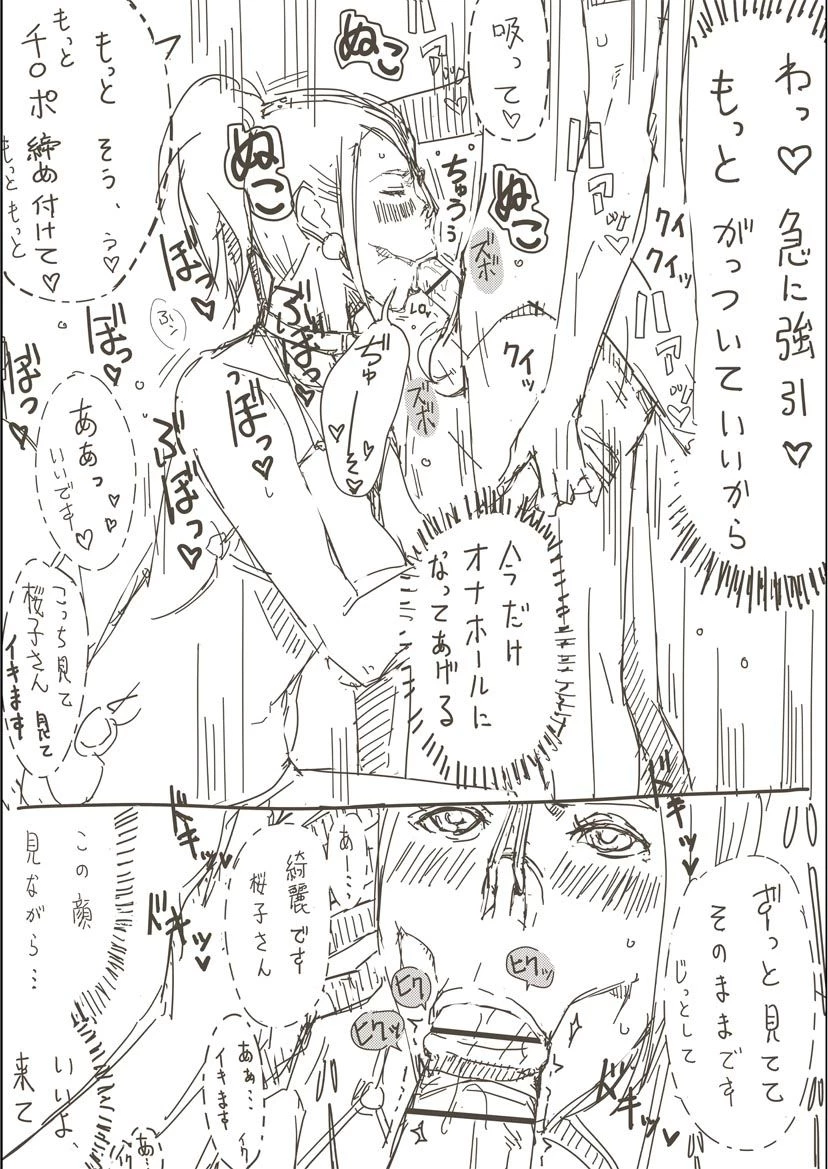 わっ♡
急に強引♡
もっと
がっついていいから
吸って♡
ぬこ
ハァ
ハァ
クイ
クイッ
ちゅうぅ
ぬこ
ズボ
もっと
そう、
もっと
チ○ポ
締め付けて♡
もっともっと
ぬこ
ぼっ♡
ぼっ♡
ぼっ♡
クイッ
ズボ
ぼっ♡
ぼっ♡
ああっ
いいです♡
今だけ
オナホールに
なってあげる
こっち見て
桜子さん
見て
イキます
ドキッ♥
ドキッ♥
ずっと見てて
そのままです
じっとして
あー…
綺麗です
桜子さん
ヒクッ
ヒク
ヒクッ
ドキッ♥
この顔
見ながら…
いいよ
来て
ああ…
イキます
あ…